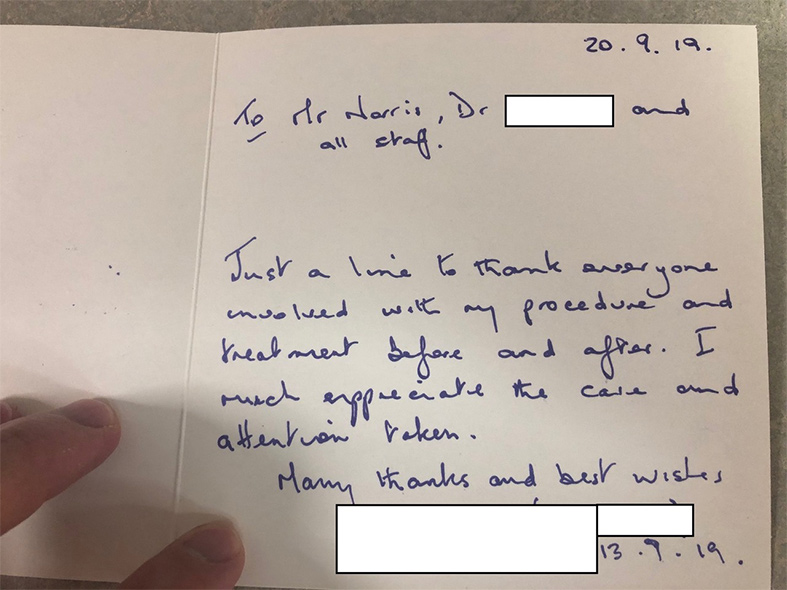 20.9.19.
To Mr Norris, Dr and
all staff.
Just a line to thank everyone
involved with my procedure and
treatment before and after. I
much appreciate the care and
attention taken.
Many thanks and best wishes
13.9.19.